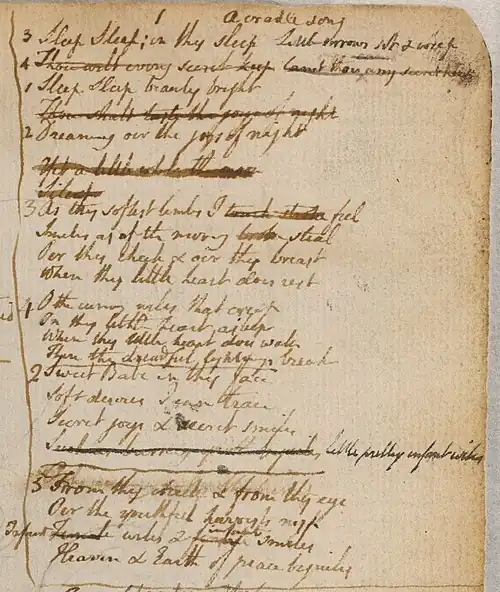 1 A cradle song
3 Sleep Sleep; in thy sleep Little sorrows sit & weep
4 Thou wilt every secret keep Canst thou any secret keep
1 Sleep Sleep beauty bright
Thou shalt taste the joys of night
2 Dreaming oer the joys of night
Yet a little while the moon
Silent
3 As thy softest limbs I touch feel
Smiles as of the morning steal
Oer thy cheek & oer thy breast
Where thy little heart does rest
4 O the cunning wiles that creep
In thy little heart asleep
When thy little heart does wake
Then the dreadful lightnings break
2 Sweet Babe in thy face
Soft desires I can trace
Secret joys & secret smiles
Such as burning youth beguiles little pretty infant wiles
5 From thy cheek & from thy eye
Oer the youthful harvests nigh
infant
Infant Female wiles & female smiles
Heaven & Earth of peace beguiles